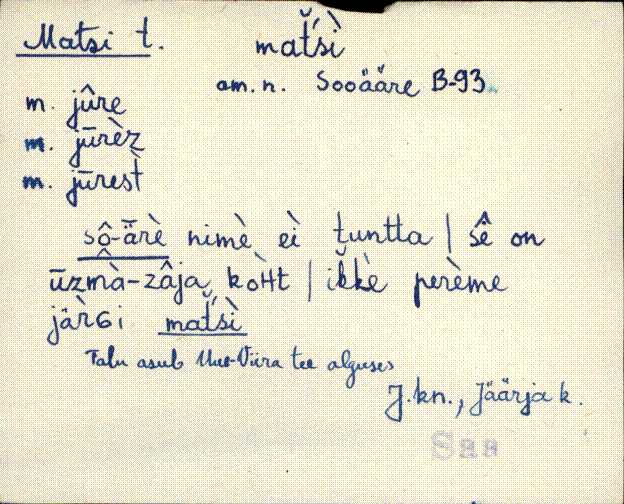 Matsi t. mat̆'s̀ì
am. n. Sooääre B-93
m. jûre
m. jūrèz
m. jūrest̀
sô-ǟrè nimè eì tuntta | sê̬ on
ūzmâ-zâja kòHt | ikkè perème
järGi mat̆'sì
Talu asub Uue-Viira tee alguses
J. kn., Jäärja k.
Saa